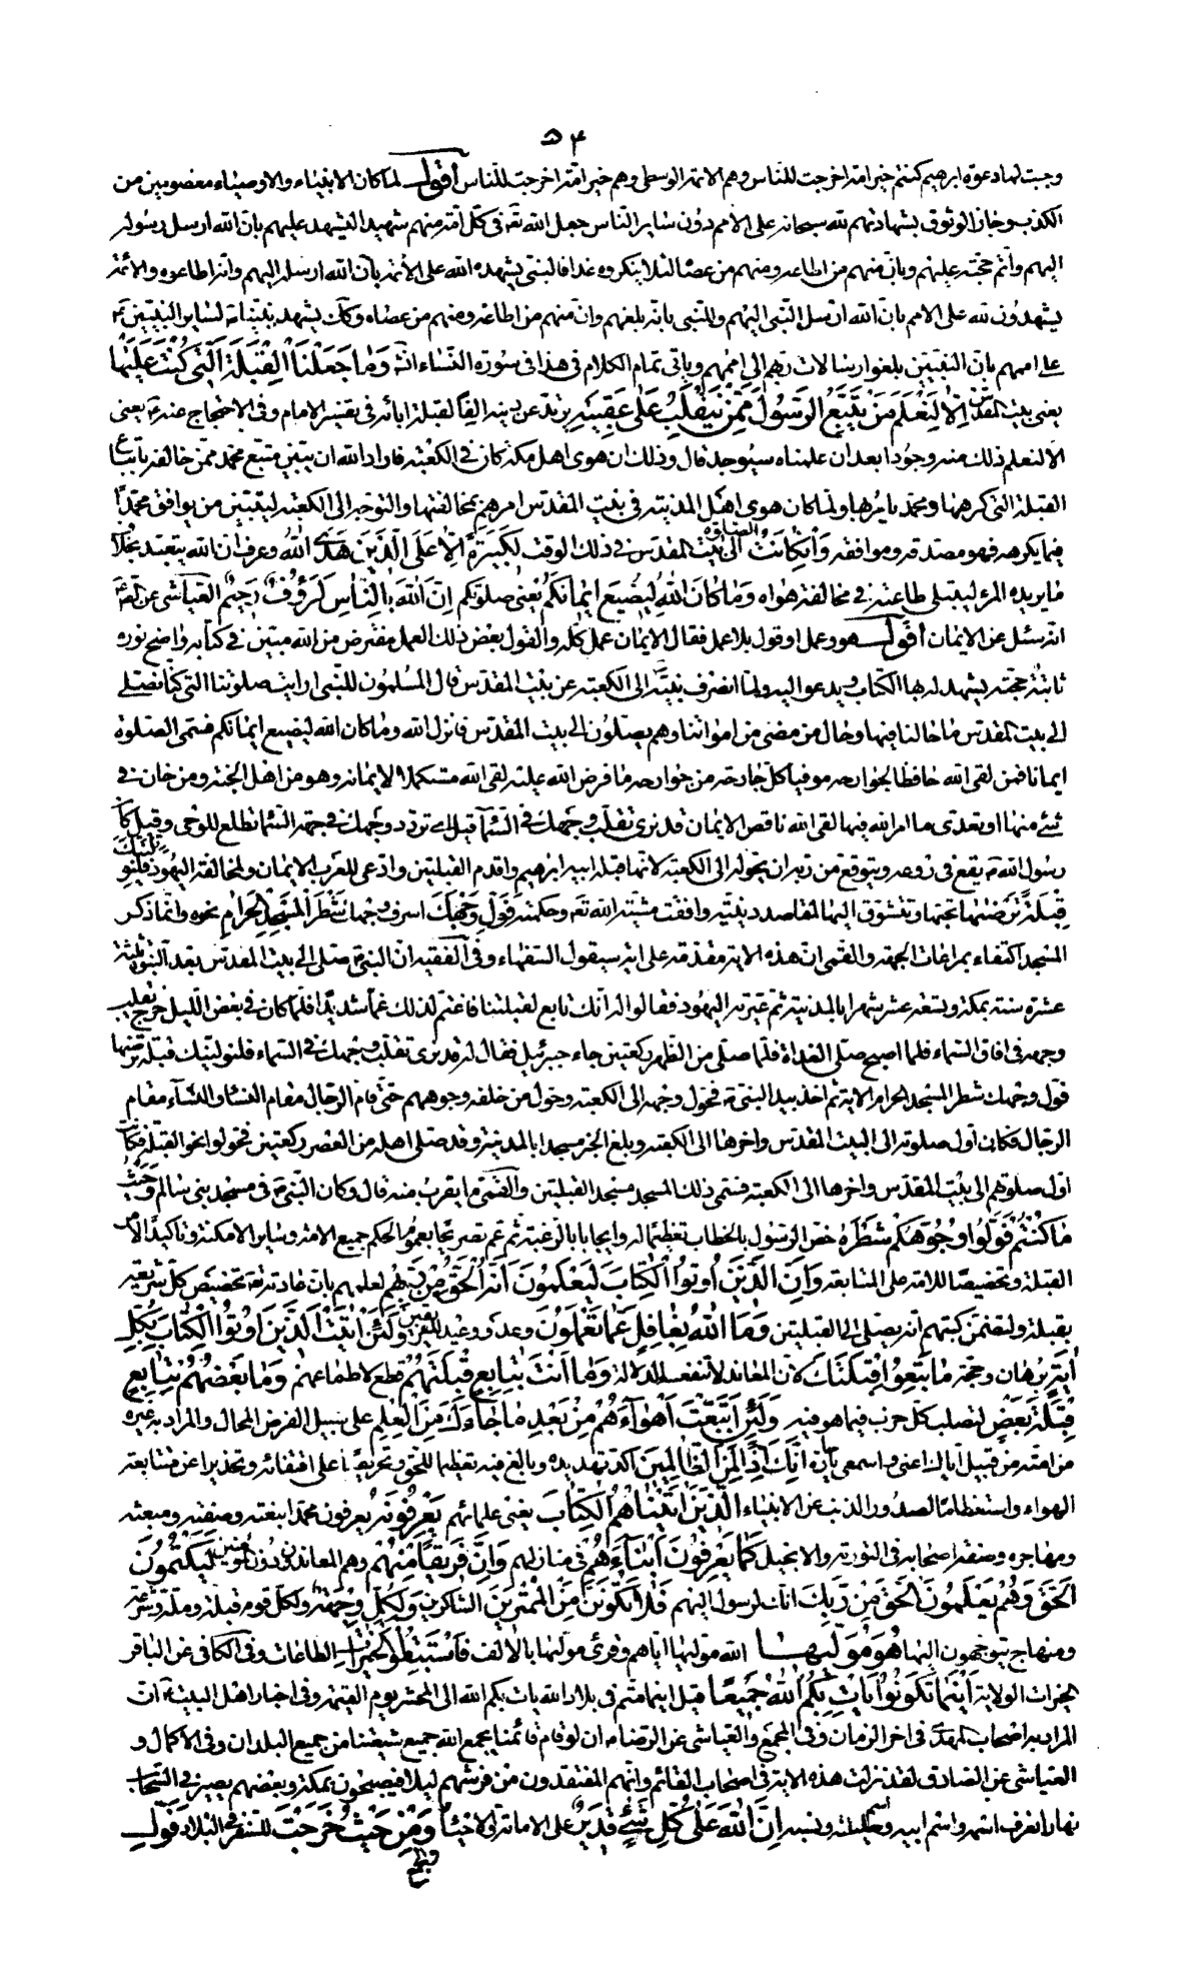 ٥٤
وجبت لها دعوة ابرهيم كنتم خير امة اخرجت للناس وهم الامة الوسطى وهم خير امة اخرجت للناس أقول لما كان الانبياء والاوصياء معصومين من
الكذب وجاز الوثوق بشهادتهم لله سبحانه على الامم دون ساير الناس جعل الله تعه في كل امة منهم شهيدا ليشهد عليهم بان الله ارسل رسوله
اليهم وأتم حجته عليهم وبان منهم من اطاعه ومنهم من عصاه لئلا ينكروه غدا فالنبي يشهد لله على الأئمة بان الله ارسله اليهم وانهم اطاعوه والأئمة
يشهدون لله على الامم بان الله ارسل النبي اليهم وللنبي بانه بلغهم وان منهم من اطاعه ومنهم من عصاه وكك يشهد نبينا له لساير النبيين ع
على اممهم بان النبيين بلغوا رسالات ربهم الى اممهم وياتي تمام الكلام في هذا في سورة النساء انش وَمَا جَعَلْنَا الْقِبْلَةَ الَّتِي كُنْتَ عَلَيْهَا
يعني بيت المقدس إِلَّا لِنَعْلَمَ مَنْ يَتَّبِعُ الرَّسُولَ مِمَّنْ يَنْقَلِبُ عَلَى عَقِبَيْهِ يرتد عن دينه الفا لقبلة ابائه في تفسير الامام وفي الاحتجاج عنه ع يعني
الا لنعلم ذلك منه وجودا بعد ان علمناه سيوجد قال وذلك ان هوى اهل مكة كان في الكعبة فاراد الله ان يبين متبع محمد ممن خالفه باتباع
القبلة التي كرهها ومحمد يامر بها ولما كان هوى اهل المدينة في بيت المقدس امرهم بمخالفتها والتوجه الى الكعبة ليتبين من يوافق محمدا
فيما يكرهه فهو مصدقه وموافقه وَإِنْ كَانَتْ الصلوة الى بيت المقدس في ذلك الوقت لَكَبِيرَةً إِلَّا عَلَى الَّذِينَ هَدَى اللَّهُ وعرف ان الله يتعبد بخلاف
ما يريده المرء ليبتلى طاعته في مخالفة هواه وَمَا كَانَ اللَّهُ لِيُضِيعَ إِيمَانَكُمْ يعني صلوتكم إِنَّ اللَّهَ بِالنَّاسِ لَرَؤُفٌ رَحِيمٌ العياشي عن الصادق ع
انه سئل عن الايمان أقول هو وعمل او قول بلا عمل فقال الايمان عمل كله والقول بعض ذلك العمل مفترض من الله مبين في كتابه واضح نوره
ثابتة حجته يشهد له بها الكتاب ويدعو اليه ولما انصرف نبيه الى الكعبة عن بيت المقدس قال المسلمون للنبي ارايت صلوتنا التي كنا نصلي
الى بيت المقدس ما حالنا فيها وحال من مضى من امواتنا وهم يصلون الى بيت المقدس فانزل الله وما كان الله ليضيع ايمانكم فسمى الصلوة
ايمانا فمن لقى الله حافظا لجوارحه موفيا كل جارحة من جوارحه ما فرض الله عليه لقى الله مستكملا لايمانه وهو من اهل الجنة ومن خان في
شئ منها او تعدى ما امر الله فيها لقى الله ناقص الايمان قد نرى تقلب وجهك في السماء قيل اى تردد وجهك في جهة السماء تطلعا للوحى وقيل كان
رسول الله ص يقع في روعه ويتوقع من ربه ان يحوله الى الكعبة لانها قبلة ابيه ابرهيم واقدم القبلتين وادعى للعرب الى الايمان ولمخالفة اليهود فَلَنُوَلِّيَنَّكَ
قِبْلَةً تَرْضَيهَا تحبها وتتشوق اليها لمقاصد دينية وافقت مشية الله تعه وحكمته فَوَلِّ وَجْهَكَ اصرف وجهك شَطْرَ الْمَسْجِدِ الْحَرَامِ نحوه وانما ذكر
المسجد اكتفاء بمراعات الجهة والقمي ان هذه الاية مقدمة على اية سيقول السفهاء وفي الفقيه ان النبي ص صلى الى بيت المقدس بعد النبوة ثلث
عشرة سنة بمكة وتسعة عشر شهرا بالمدينة ثم عيرته اليهود فقالوا له انك تابع لقبلتنا فاغتم لذلك غما شديدا فلما كان في بعض الليل خرج يقلب
وجهه في افاق السماء فلما اصبح صلى الغداة فلما صلى من الظهر ركعتين جاء جبرئيل فقال له قد نرى تقلب وجهك في السماء فلنولينك قبلة ترضيها
فول وجهك شطر المسجد الحرام الاية ثم اخذ بيد النبي ص فحول وجهه الى الكعبة وحول من خلفه وجوههم حتى قام الرجال مقام النساء والنساء مقام
الرجال فكان اول صلوته الى البيت المقدس واخرها الى الكعبة وبلغ الخبر مسجدا بالمدينة وقد صلى اهله من العصر ركعتين فحولوا نحو القبلة فكان
اول صلوتهم الى بيت المقدس واخرها الى الكعبة فسمى ذلك المسجد مسجد القبلتين والقمي ما يقرب منه قال وكان النبي ص في مسجد بني سالم وَحَيْثُ
مَا كُنْتُمْ فَوَلُّوا وُجُوهَكُمْ شَطْرَهُ خص الرسول بالخطاب تعظيما له وايجابا بالرغبته ثم عم تصريحا بعموم الحكم جميع الامة وساير الامكنة وتاكيدا لامر
القبلة وتحضيضا للامة على المتابعة وَإِنَّ الَّذِينَ أُوتُوا الْكِتَابَ لَيَعْلَمُونَ أَنَّهُ الْحَقُّ مِنْ رَبِّهِمْ لعلمهم بان عادته تعه تخصيص كل شريعة
بقبلة ولتضمن كتبهم انه يصلى الى القبلتين وَمَا اللَّهُ بِغَافِلٍ عَمَّا تَعْمَلُونَ وعد ووعيد للفريقين وَلَئِنْ أَتَيْتَ الَّذِينَ أُوتُوا الْكِتَابَ بِكُلِّ
آيَةٍ برهان وحجة مَا تَبِعُوا قِبْلَتَكَ لان المعاند لا تنفعه الدلالة وَمَا أَنْتَ بِتَابِعٍ قِبْلَتَهُمْ قطع لاطماعهم وَمَا بَعْضُهُمْ بِتَابِعٍ
قِبْلَةَ بَعْضٍ لتصلب كل حزب فيما هو فيه وَلَئِنِ اتَّبَعْتَ أَهْوَاءَهُمْ مِنْ بَعْدِ مَا جَاءَكَ مِنَ الْعِلْمِ على سبيل الفرض المحال والمراد به غيره
من امته من قبيل اياك اعنى واسمعى يا جاره إِنَّكَ إِذًا لَمِنَ الظَّالِمِينَ اكد تهديده وبالغ فيه تعظيما للحق وتحريضا على اقتفائه وتحذيرا عن متابعة
الهواء واستعظاما لصدور الذنب عن الانبياء الَّذِينَ آتَيْنَاهُمُ الْكِتَابَ يعني علمائهم يَعْرِفُونَهُ يعرفون محمدا بنعته وصفته ومبعثه
ومهاجره وصفة اصحابه في التورية والانجيل كَمَا يَعْرِفُونَ أَبْنَاءَهُمْ في منازلهم وَإِنَّ فَرِيقًا مِنْهُمْ وهم المعاندون دون المؤمنين لَيَكْتُمُونَ
الْحَقَّ وَهُمْ يَعْلَمُونَ الْحَقُّ مِنْ رَبِّكَ انك لرسول اليهم فَلَا تَكُونَنَّ مِنَ الْمُمْتَرِينَ الشاكين وَلِكُلٍّ وِجْهَةٌ ولكل قوم قبلة وملة وشرعة
ومنهاج يتوجهون اليها هُوَ مُوَلِّيهَا الله موليها اياهم وقرئ موليها بالالف فَاسْتَبِقُوا الْخَيْرَاتِ الطاعات وفي الكافي عن الباقر
الخيرات الولاية أَيْنَمَا تَكُونُوا يَأْتِ بِكُمُ اللَّهُ جَمِيعًا قيل اينما متم في بلاد الله يات بكم الله الى المحشر يوم القيمة وفي اخبار اهل البيت ع ان
المراد به اصحاب المهدي في اخر الزمان وفي المجمع والعياشي عن الرضا ع ان لو قام قائمنا يجمع الله جميع شيعتنا من جميع البلدان وفي الاكمال و
العياشي عن الصادق لقد نزلت هذه الاية في اصحاب القائم وانهم المفتقدون من فرشهم ليلا فيصبحون بمكة وبعضهم يسير في السحاب
نهارا نعرف اسمه واسم ابيه وحليته ونسبه إِنَّ اللَّهَ عَلَى كُلِّ شَيْءٍ قَدِيرٌ على الاماتة والاحياء وَمِنْ حَيْثُ خَرَجْتَ للسفر في البلاد فَوَلِّ
وجهك